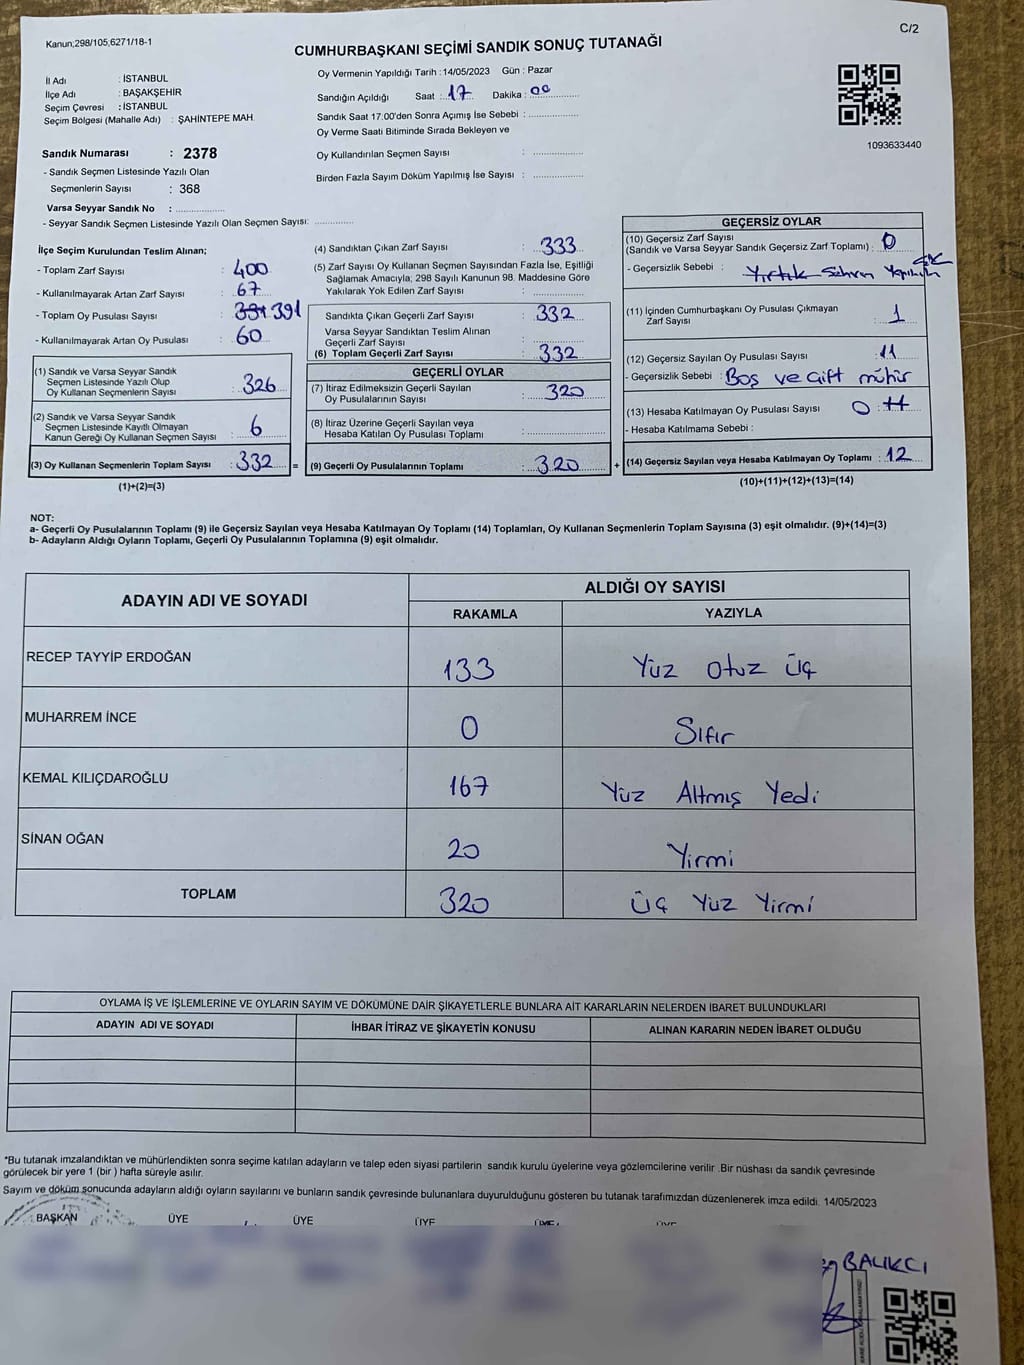 Kanun;298/105,6271/18-1
C/2
CUMHURBAŞKANI SEÇİMİ SANDIK SONUÇ TUTANAĞI
İl Adı : İSTANBUL
İlçe Adı : BAŞAKŞEHİR
Seçim Çevresi : İSTANBUL
Seçim Bölgesi (Mahalle Adı) : ŞAHİNTEPE MAH.
Sandık Numarası : 2378
- Sandık Seçmen Listesinde Yazılı Olan
Seçmenlerin Sayısı : 368
Varsa Seyyar Sandık No : ....................
- Seyyar Sandık Seçmen Listesinde Yazılı Olan Seçmen Sayısı: ................
Oy Vermenin Yapıldığı Tarih :14/05/2023 Gün : Pazar
Sandığın Açıldığı Saat : 17 Dakika : 00
Sandık Saat 17.00'den Sonra Açımış İse Sebebi : ....................
Oy Verme Saati Bitiminde Sırada Bekleyen ve
Oy Kullandırılan Seçmen Sayısı : ....................
Birden Fazla Sayım Döküm Yapılmış İse Sayısı : ....................
1093633440
İlçe Seçim Kurulundan Teslim Alınan;
- Toplam Zarf Sayısı : 400
- Kullanılmayarak Artan Zarf Sayısı : 67
- Toplam Oy Pusulası Sayısı : 391
- Kullanılmayarak Artan Oy Pusulası : 60
(1) Sandık ve Varsa Seyyar Sandık
Seçmen Listesinde Yazılı Olup
Oy Kullanan Seçmenlerin Sayısı : 326
(2) Sandık ve Varsa Seyyar Sandık
Seçmen Listesinde Kayıtlı Olmayan
Kanun Gereği Oy Kullanan Seçmen Sayısı : 6
(3) Oy Kullanan Seçmenlerin Toplam Sayısı : 332 =
(1)+(2)=(3)
(4) Sandıktan Çıkan Zarf Sayısı : 333
(5) Zarf Sayısı Oy Kullanan Seçmen Sayısından Fazla İse, Eşitliği
Sağlamak Amacıyla; 298 Sayılı Kanunun 98. Maddesine Göre
Yakılarak Yok Edilen Zarf Sayısı : ....................
Sandıkta Çıkan Geçerli Zarf Sayısı : 332
Varsa Seyyar Sandıktan Teslim Alınan
Geçerli Zarf Sayısı : ....................
(6) Toplam Geçerli Zarf Sayısı : 332
GEÇERLİ OYLAR
(7) İtiraz Edilmeksizin Geçerli Sayılan
Oy Pusulalarının Sayısı : 320
(8) İtiraz Üzerine Geçerli Sayılan veya
Hesaba Katılan Oy Pusulası Toplamı : ....................
(9) Geçerli Oy Pusulalarının Toplamı : 320 +
GEÇERSİZ OYLAR
(10) Geçersiz Zarf Sayısı
(Sandık ve Varsa Seyyar Sandık Geçersiz Zarf Toplamı) : 0
- Geçersizlik Sebebi : Yırtık
(11) İçinden Cumhurbaşkanı Oy Pusulası Çıkmayan
Zarf Sayısı : 1
(12) Geçersiz Sayılan Oy Pusulası Sayısı : 11
- Geçersizlik Sebebi : Boş ve Çift mühür
(13) Hesaba Katılmayan Oy Pusulası Sayısı 0 : 11
- Hesaba Katılmama Sebebi :
(14) Geçersiz Sayılan veya Hesaba Katılmayan Oy Toplamı : 12
(10)+(11)+(12)+(13)=(14)
NOT:
a- Geçerli Oy Pusulalarının Toplamı (9) ile Geçersiz Sayılan veya Hesaba Katılmayan Oy Toplamı (14) Toplamları, Oy Kullanan Seçmenlerin Toplam Sayısına (3) eşit olmalıdır. (9)+(14)=(3)
b- Adayların Aldığı Oyların Toplamı, Geçerli Oy Pusulalarının Toplamına (9) eşit olmalıdır.
ADAYIN ADI VE SOYADI
ALDIĞI OY SAYISI
RAKAMLA YAZIYLA
RECEP TAYYİP ERDOĞAN 133 Yüz Otuz Üç
MUHARREM İNCE 0 Sıfır
KEMAL KILIÇDAROĞLU 167 Yüz Altmış Yedi
SİNAN OĞAN 20 Yirmi
TOPLAM 320 Üç Yüz Yirmi
OYLAMA İŞ VE İŞLEMLERİNE VE OYLARIN SAYIM VE DÖKÜMÜNE DAİR ŞİKAYETLERLE BUNLARA AİT KARARLARIN NELERDEN İBARET BULUNDUKLARI
ADAYIN ADI VE SOYADI İHBAR İTİRAZ VE ŞİKAYETİN KONUSU ALINAN KARARIN NEDEN İBARET OLDUĞU
*Bu tutanak imzalandıktan ve mühürlendikten sonra seçime katılan adayların ve talep eden siyasi partilerin sandık kurulu üyelerine veya gözlemcilerine verilir .Bir nüshası da sandık çevresinde
görülecek bir yere 1 (bir ) hafta süreyle asılır.
Sayım ve döküm sonucunda adayların aldığı oyların sayılarını ve bunların sandık çevresinde bulunanlara duyurulduğunu gösteren bu tutanak tarafımızdan düzenlenerek imza edildi. 14/05/2023
BAŞKAN ÜYE ÜYE ÜYE ÜYE ÜYE
BALIKCI